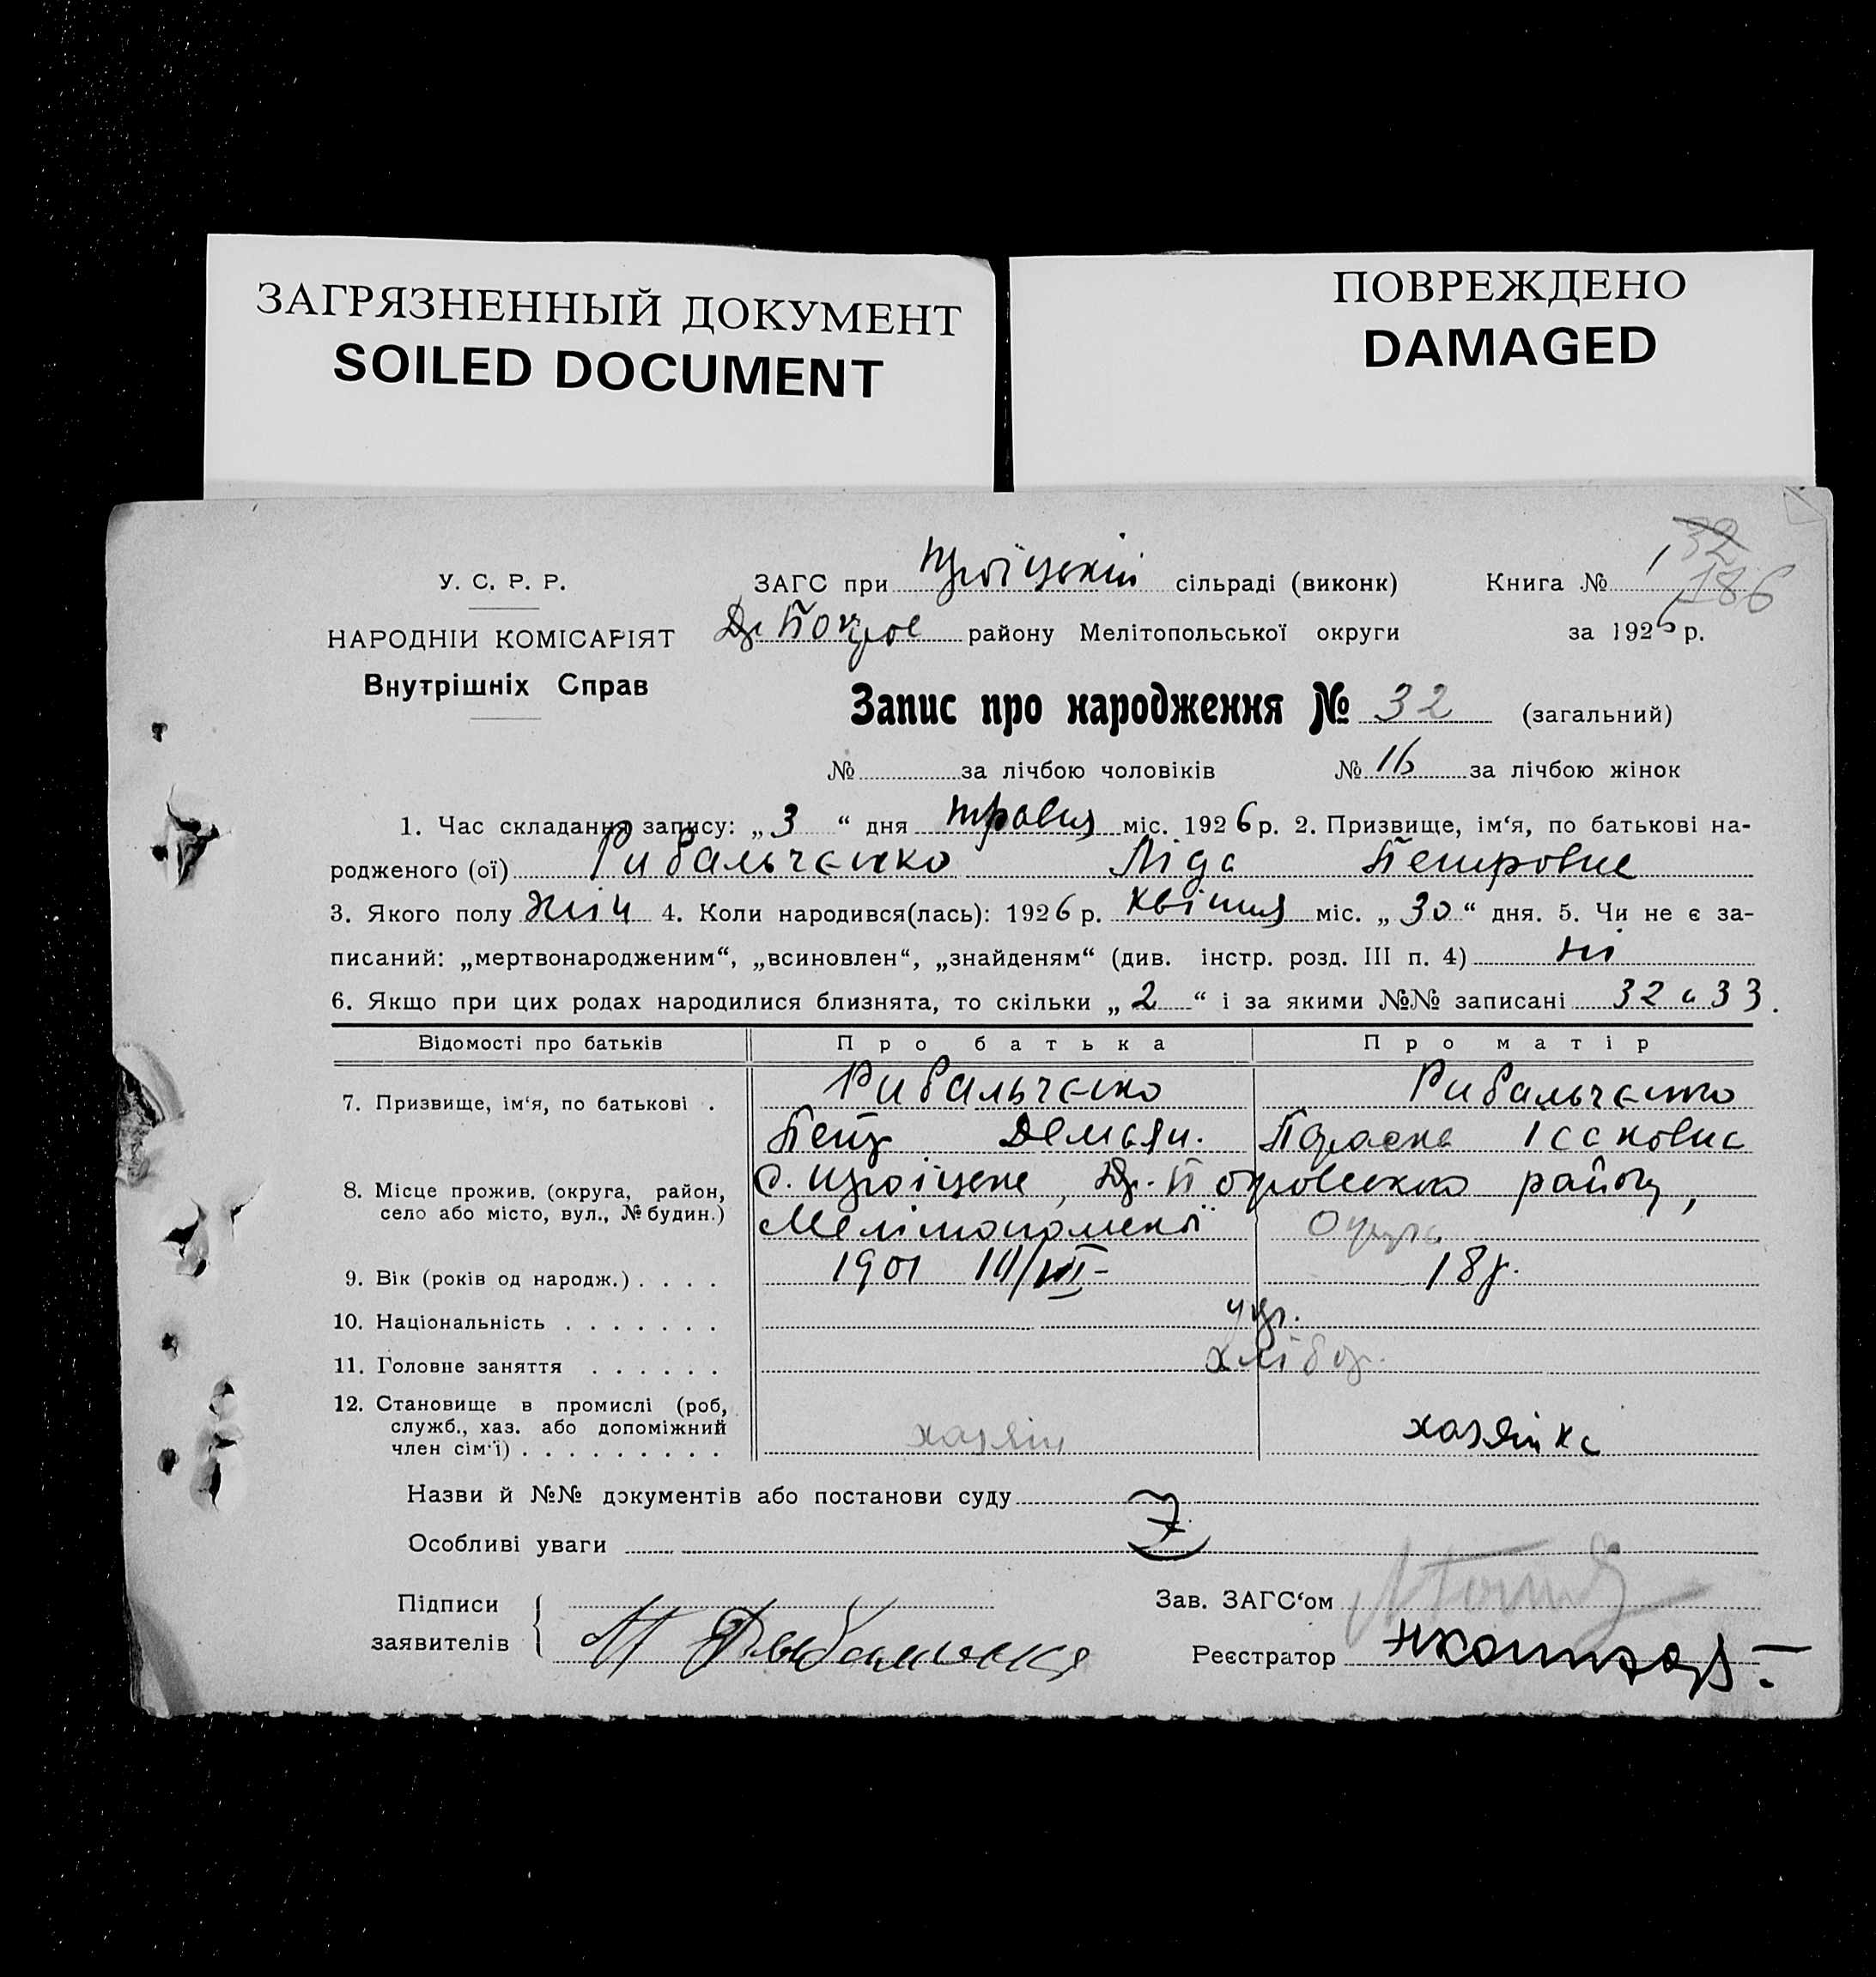 ЗАГРЯЗНЕННЫЙ ДОКУМЕНТ
SOILED DOCUMENT
ПОВРЕЖДЕНО
DAMAGED
32
У. С. Р. Р.
ЗАГС при Троїцькій сільраді (виконк) Книга № 186
НАРОДНІЙ КОМІСАРІЯТ
Внутрішніх Справ
району Мелітопольської округи за 1926 р.
Запис про народження № 32 (загальний)
№ за лічбою чоловіків № 16 за лічбою жінок
1. Час складання запису: „3“ дня травня міс. 1926 р. 2. Призвище, ім‘я, по батькові на-
родженого (ої) Рибальченко Ліда Петровна
3. Якого полу жіч 4. Коли народився(лась): 1926 р. квітня міс. „30“ дня. 5. Чи не є за-
писаний: „мертвонародженим“, „всиновлен“, „знайденям“ (див. інстр. розд. III п. 4) ні
6. Якщо при цих родах народилися близнята, то скільки „2“ і за якими №№ записані 32 и 33.
Відомості про батьків Про батька Про матір
7. Призвище, ім‘я, по батькові . Рибальченко Рибальченко
Петр Демьян. Параска Ісаковна
8. Місце прожив. (округа, район, село або місто, вул., № будин.) с. Троїцьке, Др. Покровського району,
Мелітопольської Округи
9. Вік (років од народж.) . . . . 1901 18 р.
10. Національність . . . . . . . укр.
11. Головне заняття . . . . . . хлібор.
12. Становище в промислі (роб, служб., хаз. або допоміжний член сім‘ї) . . . . . . . . . хазяїн хазяйка
Назви й №№ документів або постанови суду
Особливі уваги
Підписи
заявителів
Зав. ЗАГС‘ом
Реєстратор